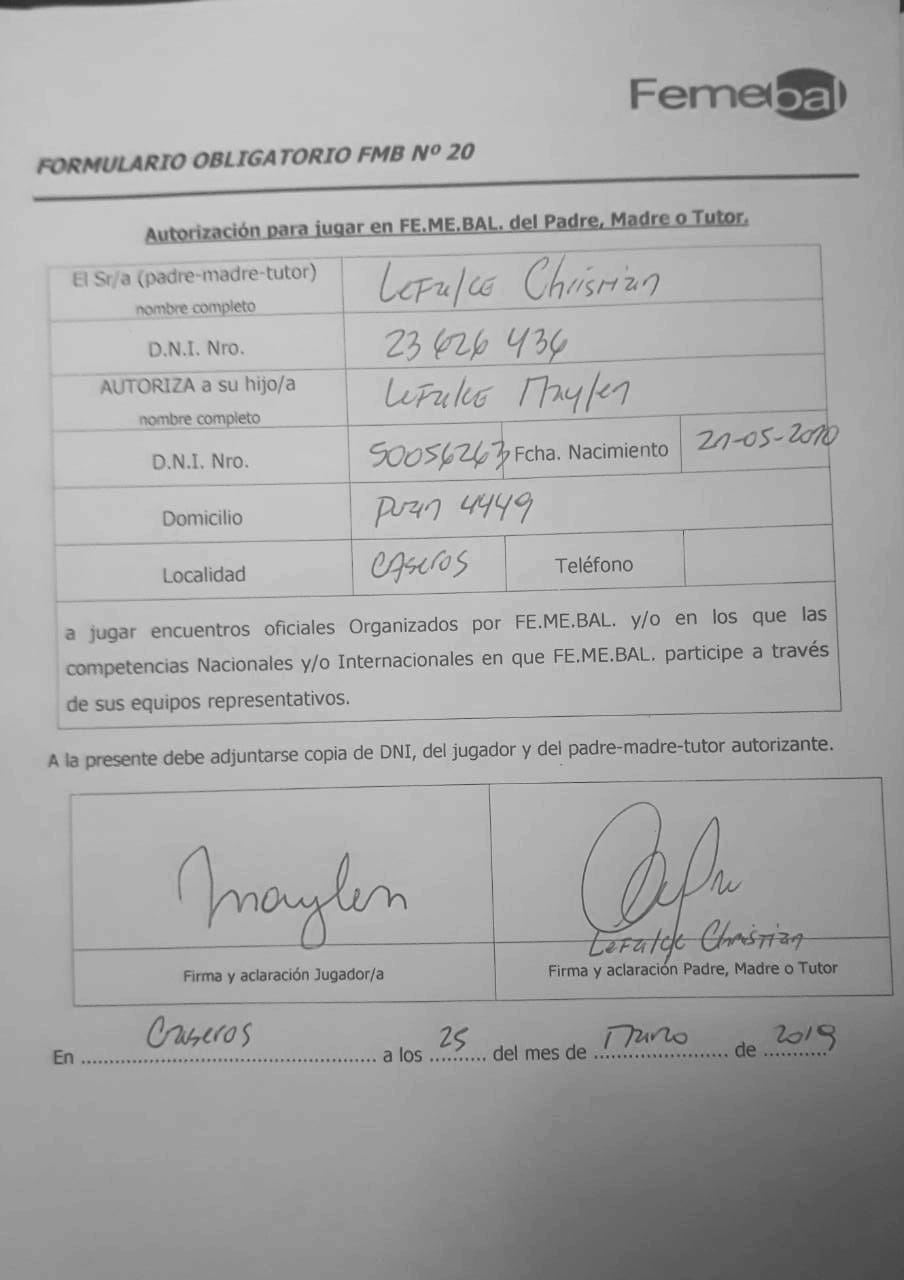 Femebal
FORMULARIO OBLIGATORIO FMB Nº 20
Autorización para jugar en FE.ME.BAL. del Padre, Madre o Tutor.
El Sr/a (padre-madre-tutor) Lefulce Christian
nombre completo
D.N.I. Nro. 23 626 436
AUTORIZA a su hijo/a Lefulce Maylen
nombre completo
D.N.I. Nro. 50056263 Fcha. Nacimiento 21-05-2010
Domicilio Puan 4449
Localidad CASEROS Teléfono
a jugar encuentros oficiales Organizados por FE.ME.BAL. y/o en los que las
competencias Nacionales y/o Internacionales en que FE.ME.BAL. participe a través
de sus equipos representativos.
A la presente debe adjuntarse copia de DNI, del jugador y del padre-madre-tutor autorizante.
Maylen
Christian
Firma y aclaración Jugador/a Firma y aclaración Padre, Madre o Tutor
En Caseros a los 25 del mes de Marzo de 2019